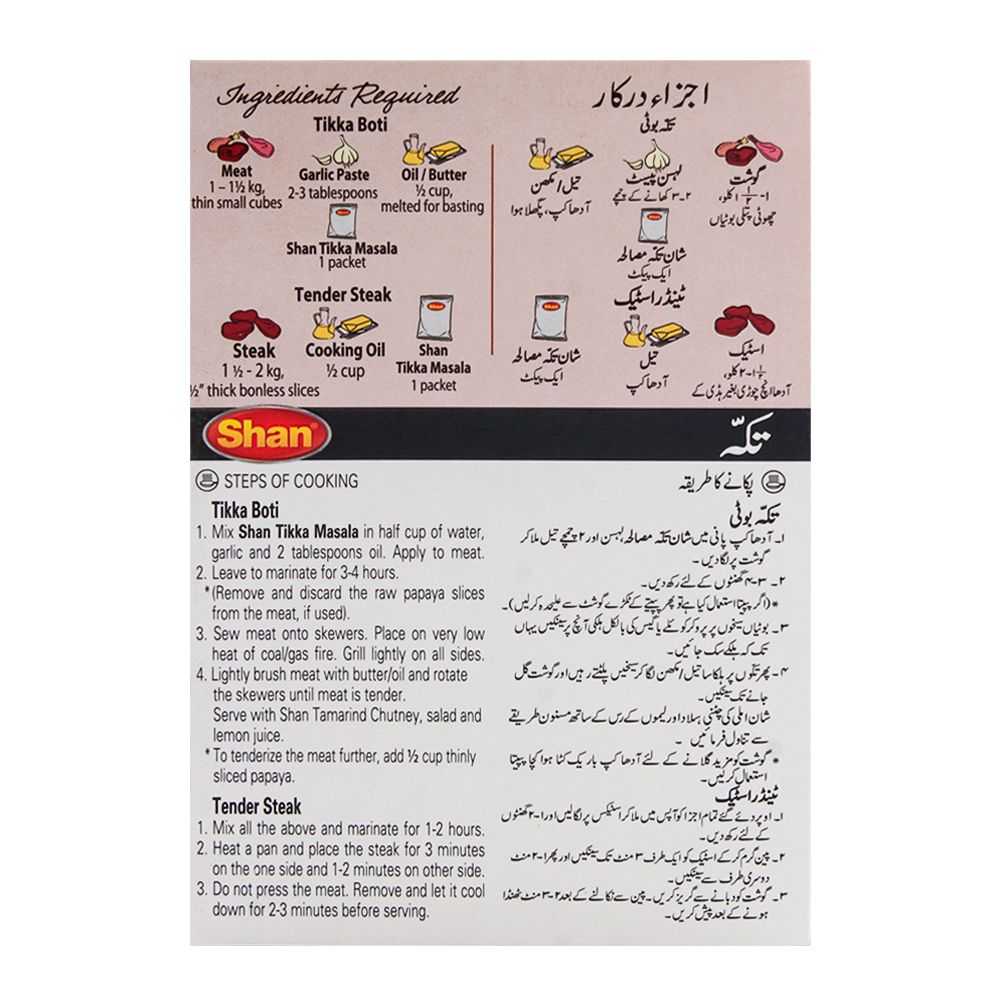 Ingredients Required
Tikka Boti
Meat
1 – 1½ kg,
thin small cubes
Garlic Paste
2-3 tablespoons
Oil / Butter
½ cup,
melted for basting
Shan
Shan Tikka Masala
1 packet
Tender Steak
Steak
1 ½ - 2 kg,
½” thick bonless slices
Cooking Oil
½ cup
Shan
Shan
Tikka Masala
1 packet
اجزاء درکار
تکہ بوٹی
گوشت
۱-۱ ½ کلو،
چھوٹی پتلی بوٹیاں
لہسن پیسٹ
۲۔۳ کھانے کے چمچے
تیل / مکھن
آدھا کپ، پگھلا ہوا
Shan
شان تکہ مصالحہ
ایک پیکٹ
ٹینڈر اسٹیک
اسٹیک
۱½-۲ کلو،
آدھا انچ چوڑی بغیر ہڈی کے
تیل
آدھا کپ
Shan
شان تکہ مصالحہ
ایک پیکٹ
Shan®
تکہّ
STEPS OF COOKING
Tikka Boti
1. Mix Shan Tikka Masala in half cup of water,
garlic and 2 tablespoons oil. Apply to meat.
2. Leave to marinate for 3-4 hours.
*(Remove and discard the raw papaya slices
from the meat, if used).
3. Sew meat onto skewers. Place on very low
heat of coal/gas fire. Grill lightly on all sides.
4. Lightly brush meat with butter/oil and rotate
the skewers until meat is tender.
Serve with Shan Tamarind Chutney, salad and
lemon juice.
* To tenderize the meat further, add ½ cup thinly
sliced papaya.
Tender Steak
1. Mix all the above and marinate for 1-2 hours.
2. Heat a pan and place the steak for 3 minutes
on the one side and 1-2 minutes on other side.
3. Do not press the meat. Remove and let it cool
down for 2-3 minutes before serving.
پکانے کا طریقہ
تکہّ بوٹی
۱۔ آدھا کپ پانی میں شان تکہّ مصالحہ، لہسن اور ۲ چمچے تیل ملا کر
گوشت پر لگا دیں۔
۲۔ ۳-۴ گھنٹوں کے لئے رکھ دیں۔
*(اگر پپیتا استعمال کیا ہے تو پھر پپیتے کے ٹکڑے گوشت سے علیحدہ کرلیں)۔
۳۔ بوٹیاں سیخوں پر پرو کر کوئلے یا گیس کی بالکل ہلکی آنچ پر سینکیں یہاں
تک کہ ہلکے سک جائیں۔
۴۔ پھر تکوّں پر ہلکا سا تیل / مکھن لگا کر سیخیں پلٹتے رہیں اور گوشت گل
جانے تک سینکیں۔
شان املی کی چٹنی، سلاد اور لیموں کے رس کے ساتھ مسنون طریقے
سے تناول فرمائیں ۔
* گوشت کو مزید گلانے کے لئے آدھا کپ باریک کٹا ہوا کچا پپیتا
استعمال کرلیں۔
ٹینڈر اسٹیک
۱۔ اوپر دئے گئے تمام اجزا کو آپس میں ملا کر اسٹیکس پر لگا لیں اور ۱-۲ گھنٹوں
کے لئے رکھ دیں۔
۲۔ پین گرم کر کے اسٹیک کو ایک طرف ۳ منٹ تک سینکیں اور پھر ۱-۲ منٹ
دوسری طرف سے سینکیں۔
۳۔ گوشت کو دبانے سے گریز کریں۔ پین سے نکالنے کے بعد ۲-۳ منٹ ٹھنڈا
ہونے کے بعد پیش کریں۔